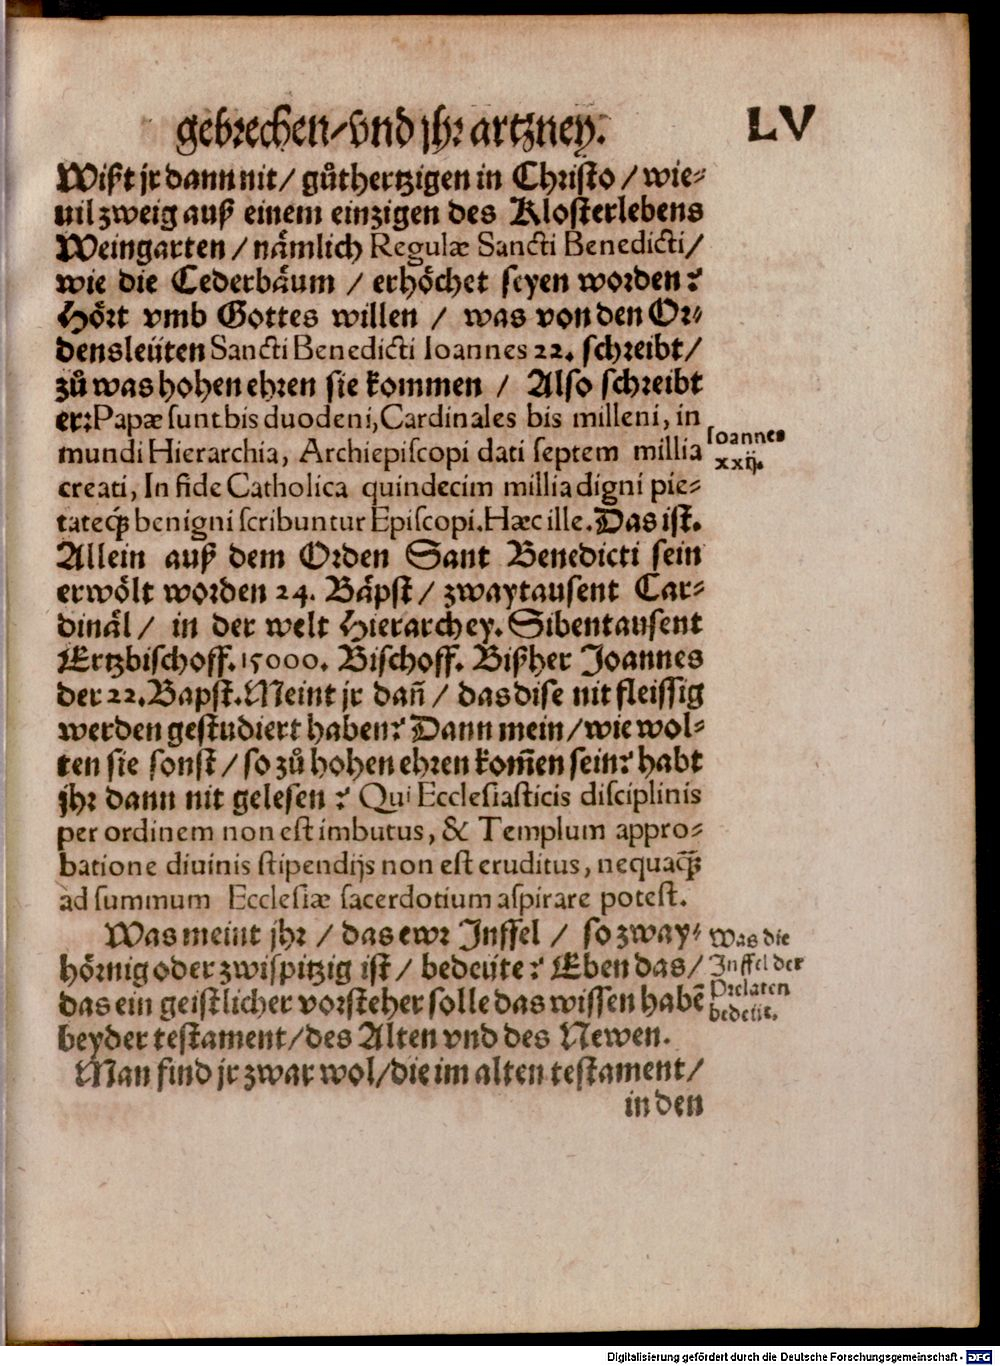 gebrechen/vnd jhr artzney. LV
Wißt jr dann nit/ gůthertzigen in Christo / wie-
uil zweig auß einem einzigen des Klosterlebens
Weingarten / nämlich Regulæ Sancti Benedicti/
wie die Cederbäum / erhöchet seyen worden?
Hört vmb Gottes willen / was von den Or-
densleüten Sancti Benedicti Ioannes 22. schreibt/
zů was hohen ehren sie kommen / Also schreibt
er: Papæ sunt bis duodeni, Cardinales bis milleni, in
mundi Hierarchia, Archiepiscopi dati septem millia
creati, In fide Catholica quindecim millia digni pie-
tateq́; benigni scribuntur Episcopi. Hæc ille. Das ist.
Allein auß dem Orden Sant Benedicti sein
erwölt worden 24. Bäpst / zwaytausent Car-
dinäl / in der welt Hierarchey. Sibentausent
Ertzbischoff. 15000. Bischoff. Bißher Joannes
der 22. Bapst. Meint jr dañ / das dise nit fleissig
werden gestudiert haben? Dann mein/ wie wol-
ten sie sonst / so zů hohen ehren kom̃en sein? habt
jhr dann nit gelesen ? Qui Ecclesiasticis disciplinis
per ordinem non est imbutus, & Templum appro-
batione diuinis stipendijs non est eruditus, nequaq̃;
ad summum Ecclesiæ sacerdotium aspirare potest.
Ioannes
xxij.
Was meint jhr / das ewr Inffel / so zway-
hörnig oder zwispitzig ist / bedeüte? Eben das/
das ein geistlicher vorsteher solle das wissen habẽ
beyder testament/ des Alten vnd des Newen.
Man find jr zwar wol/ die im alten testament/
in den
Was die
Inffel der
Prelaten
bedeüt.
Digitalisierung gefördert durch die Deutsche Forschungsgemeinschaft - DFG